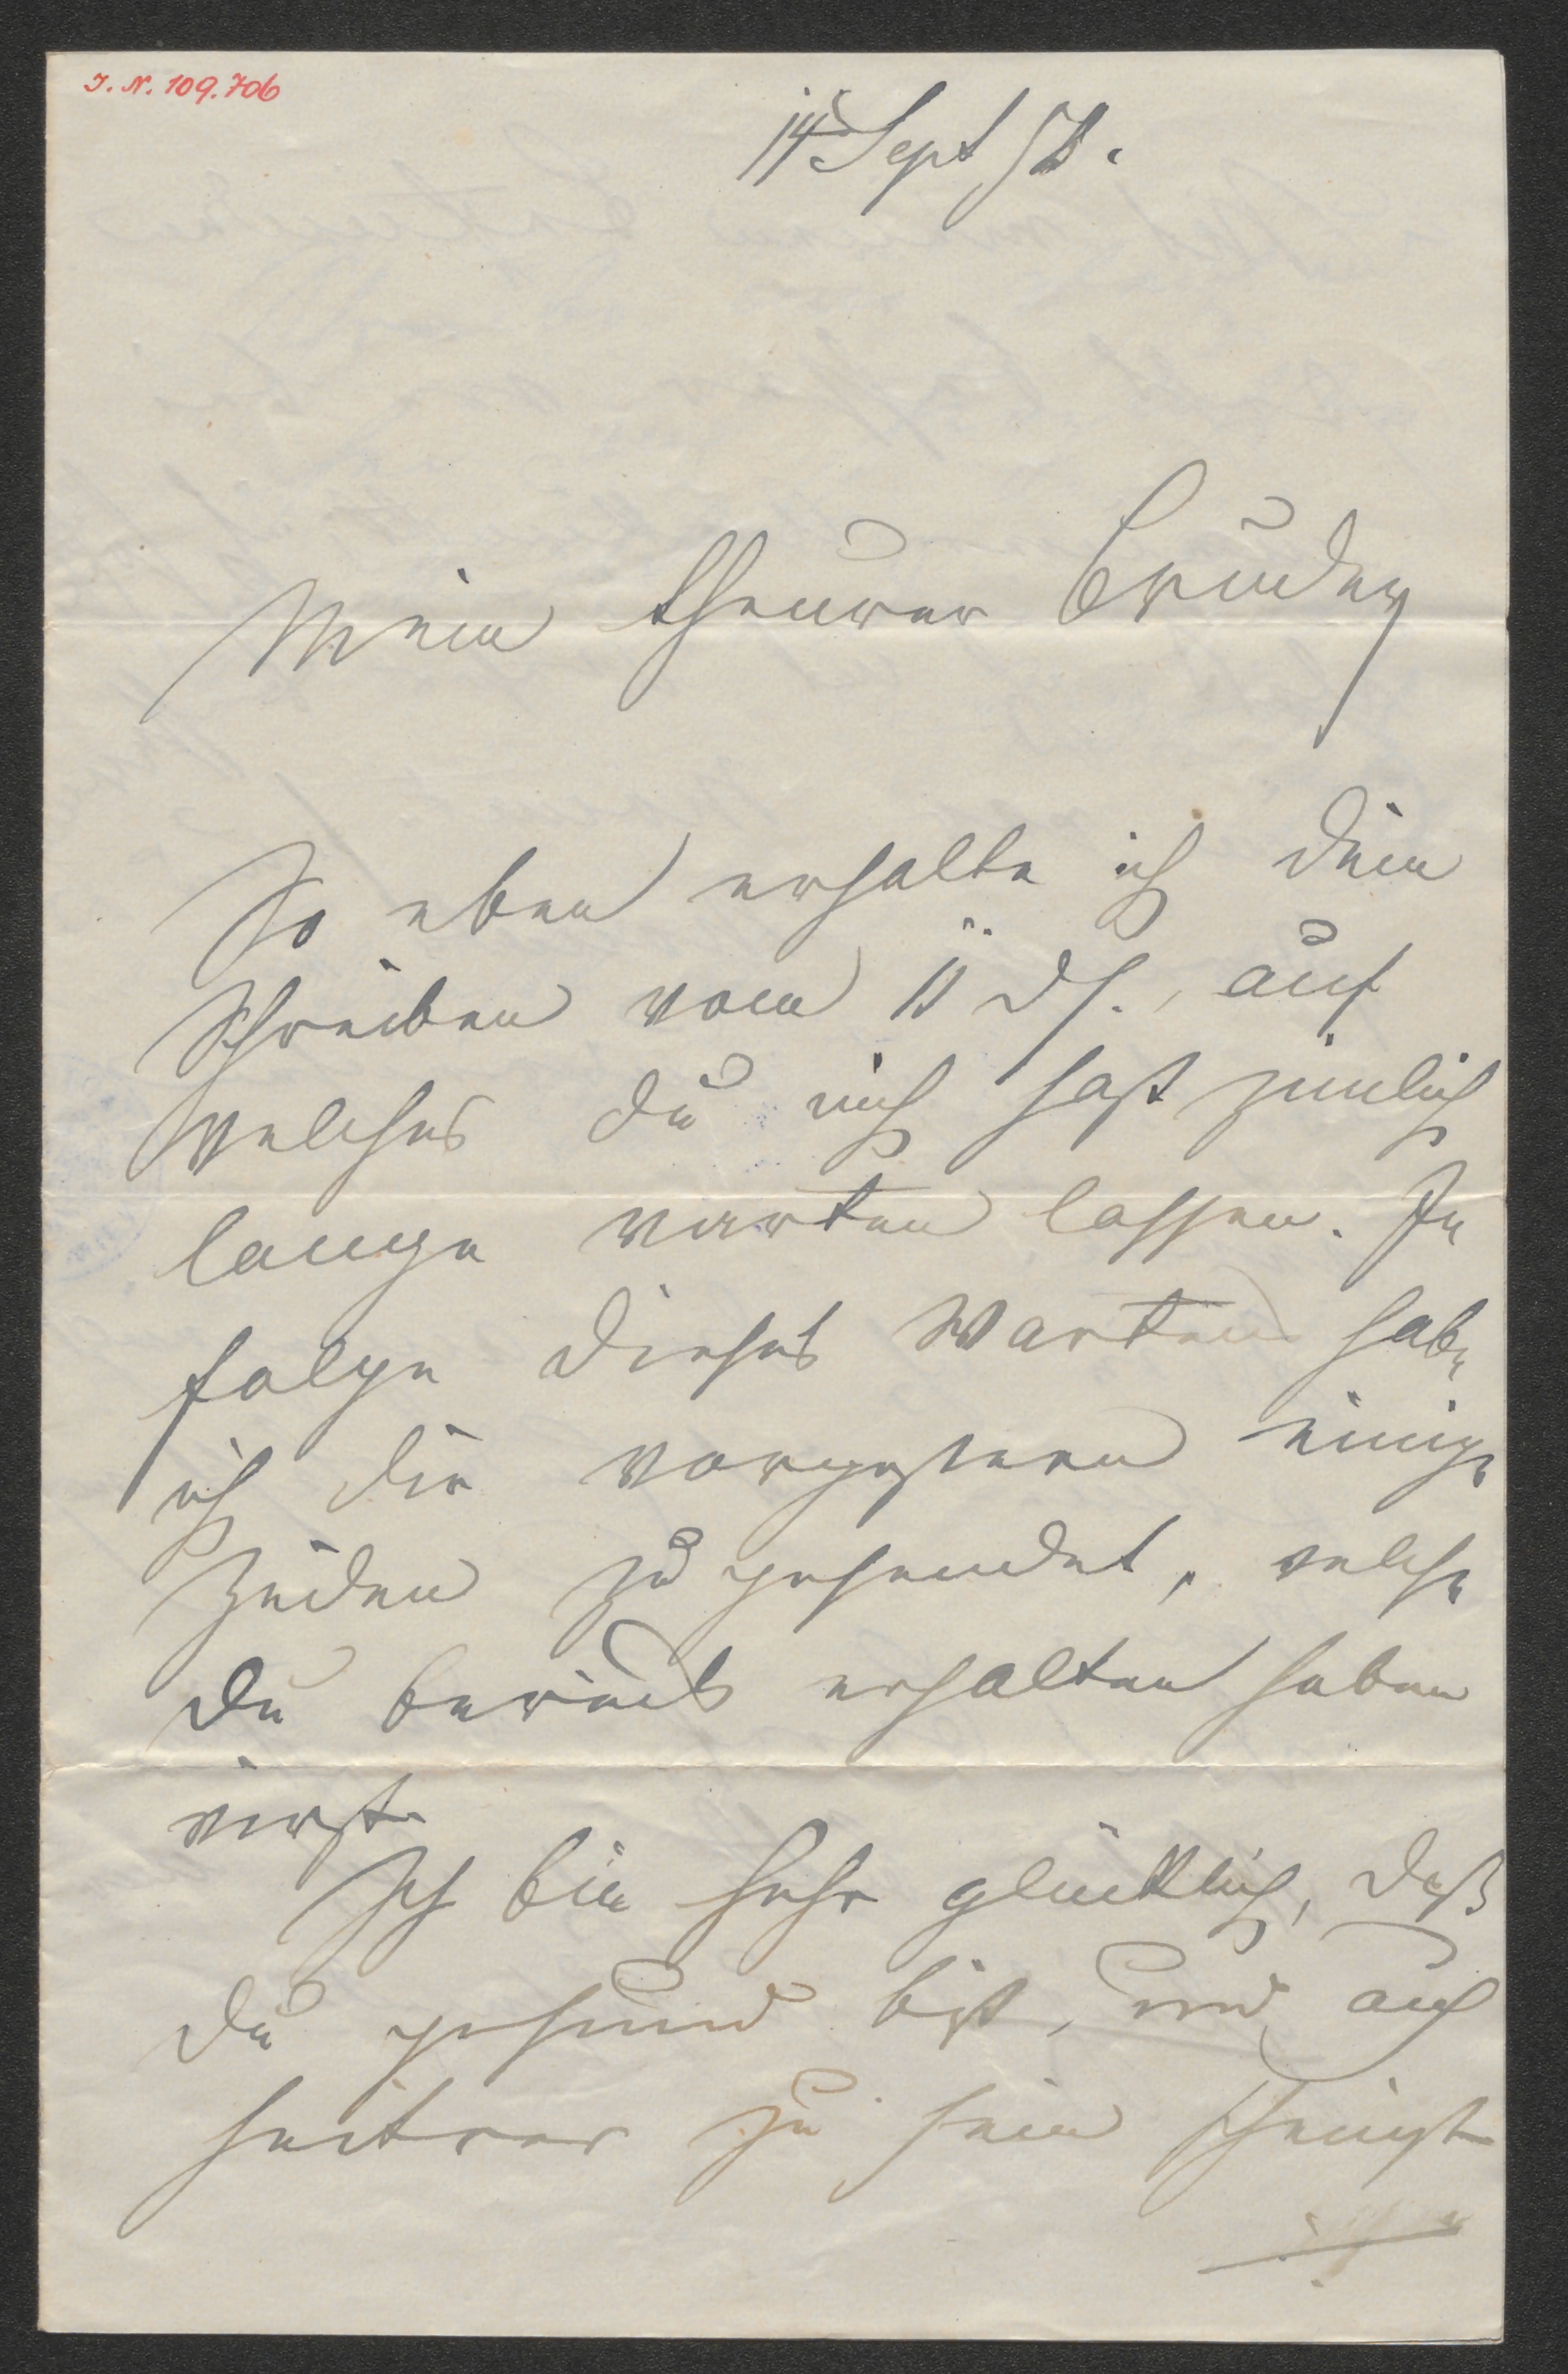 I. N. 109.706
14 Sept 58.
Mein theurer Bruder
So eben erhalte ich dein
Schreiben vom 11 ds., auf
Welches du mich hast zimlich
lange warten lassen. In
folge dieses Warten habe
ich dir vorgestern einige
Zeilen zu gesendet, welche
du bereits erhalten haben
wirst
Ich bin sehr glücklich, daß
du gesund bist, und auch
heiterer zu sein scheinst